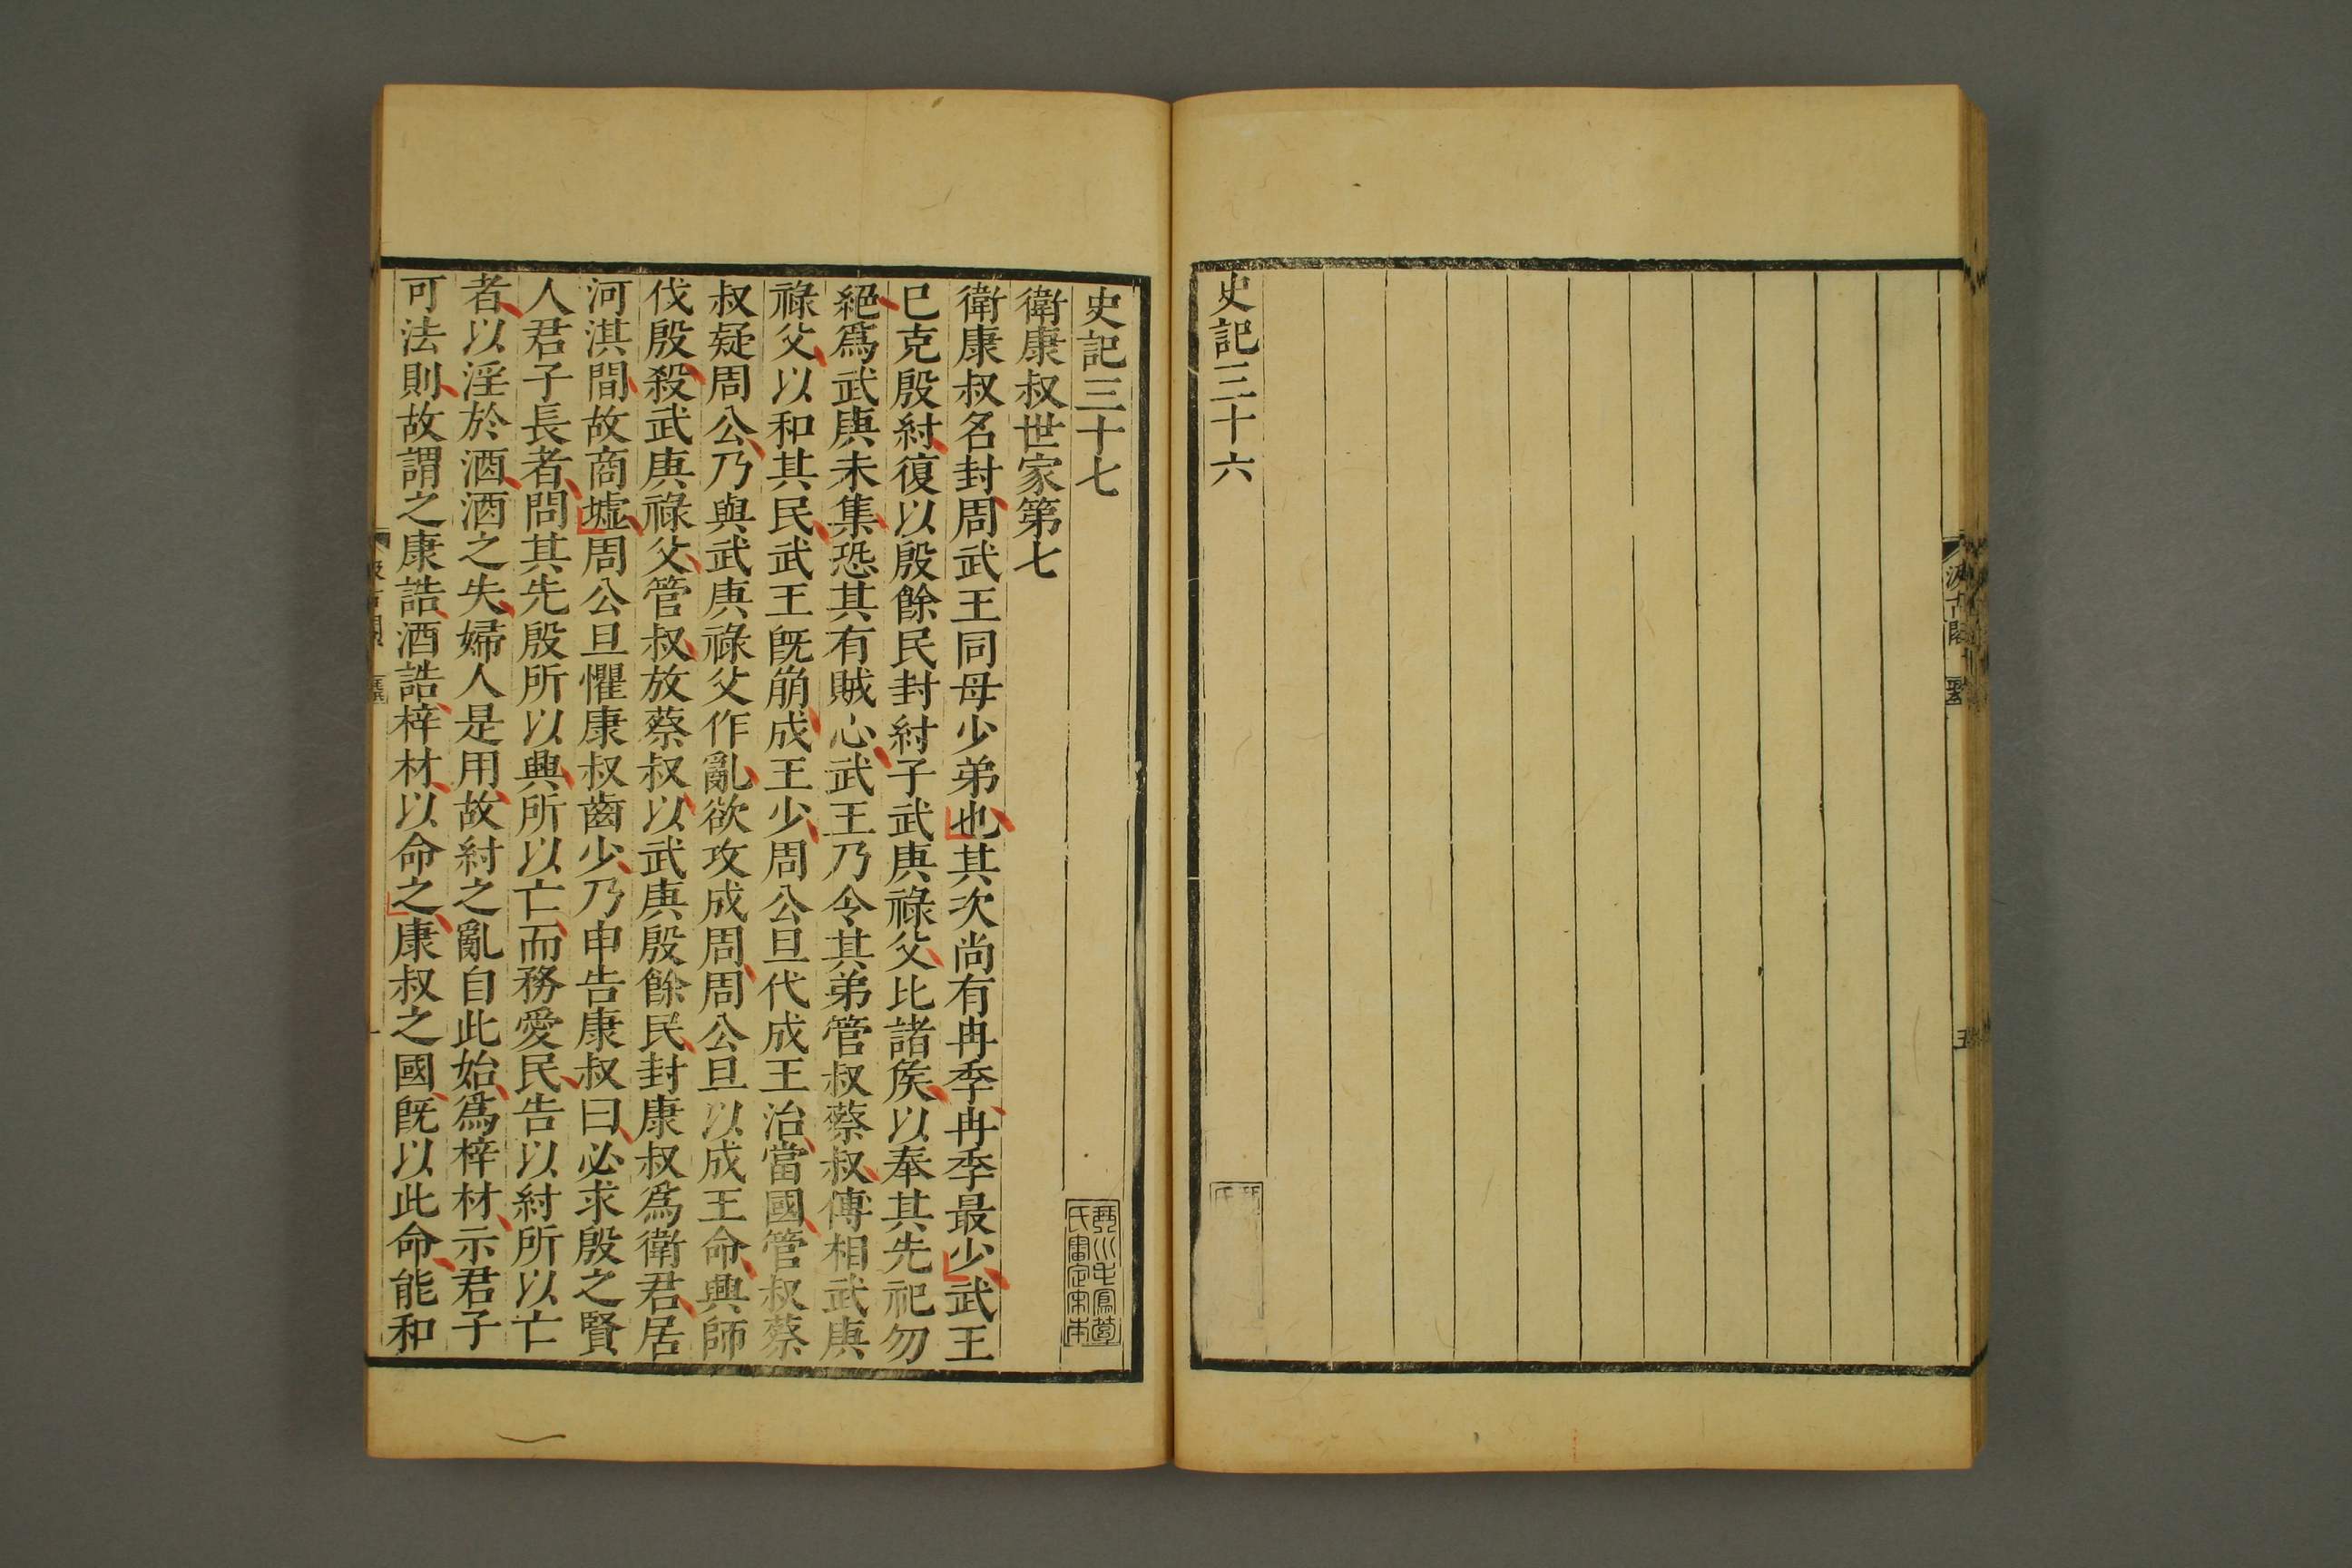 史記三十六
汲古閣
史記三十七
衛康叔世家第七
衛康叔名封周武王同母少弟也其次尚有冉季冉季最少武王
已克殷紂復以殷餘民封紂子武庚祿父比諸侯以奉其先祀勿
絕爲武庚未集恐其有賊心武王乃令其弟管叔蔡叔傅相武庚
祿父以和其民武王旣崩成王少周公旦代成王治當國管叔蔡
叔疑周公乃與武庚祿父作亂欲攻成周周公旦以成王命興師
伐殷殺武庚祿父管叔放蔡叔以武庚殷餘民封康叔爲衛君居
河淇間故商墟周公旦懼康叔齒少乃申告康叔曰必求殷之賢
人君子長者問其先殷所以興所以亡而務愛民告以紂所以亡
者以淫於酒酒之失婦人是用故紂之亂自此始爲梓材示君子
可法則故謂之康誥酒誥梓材以命之康叔之國旣以此命能和